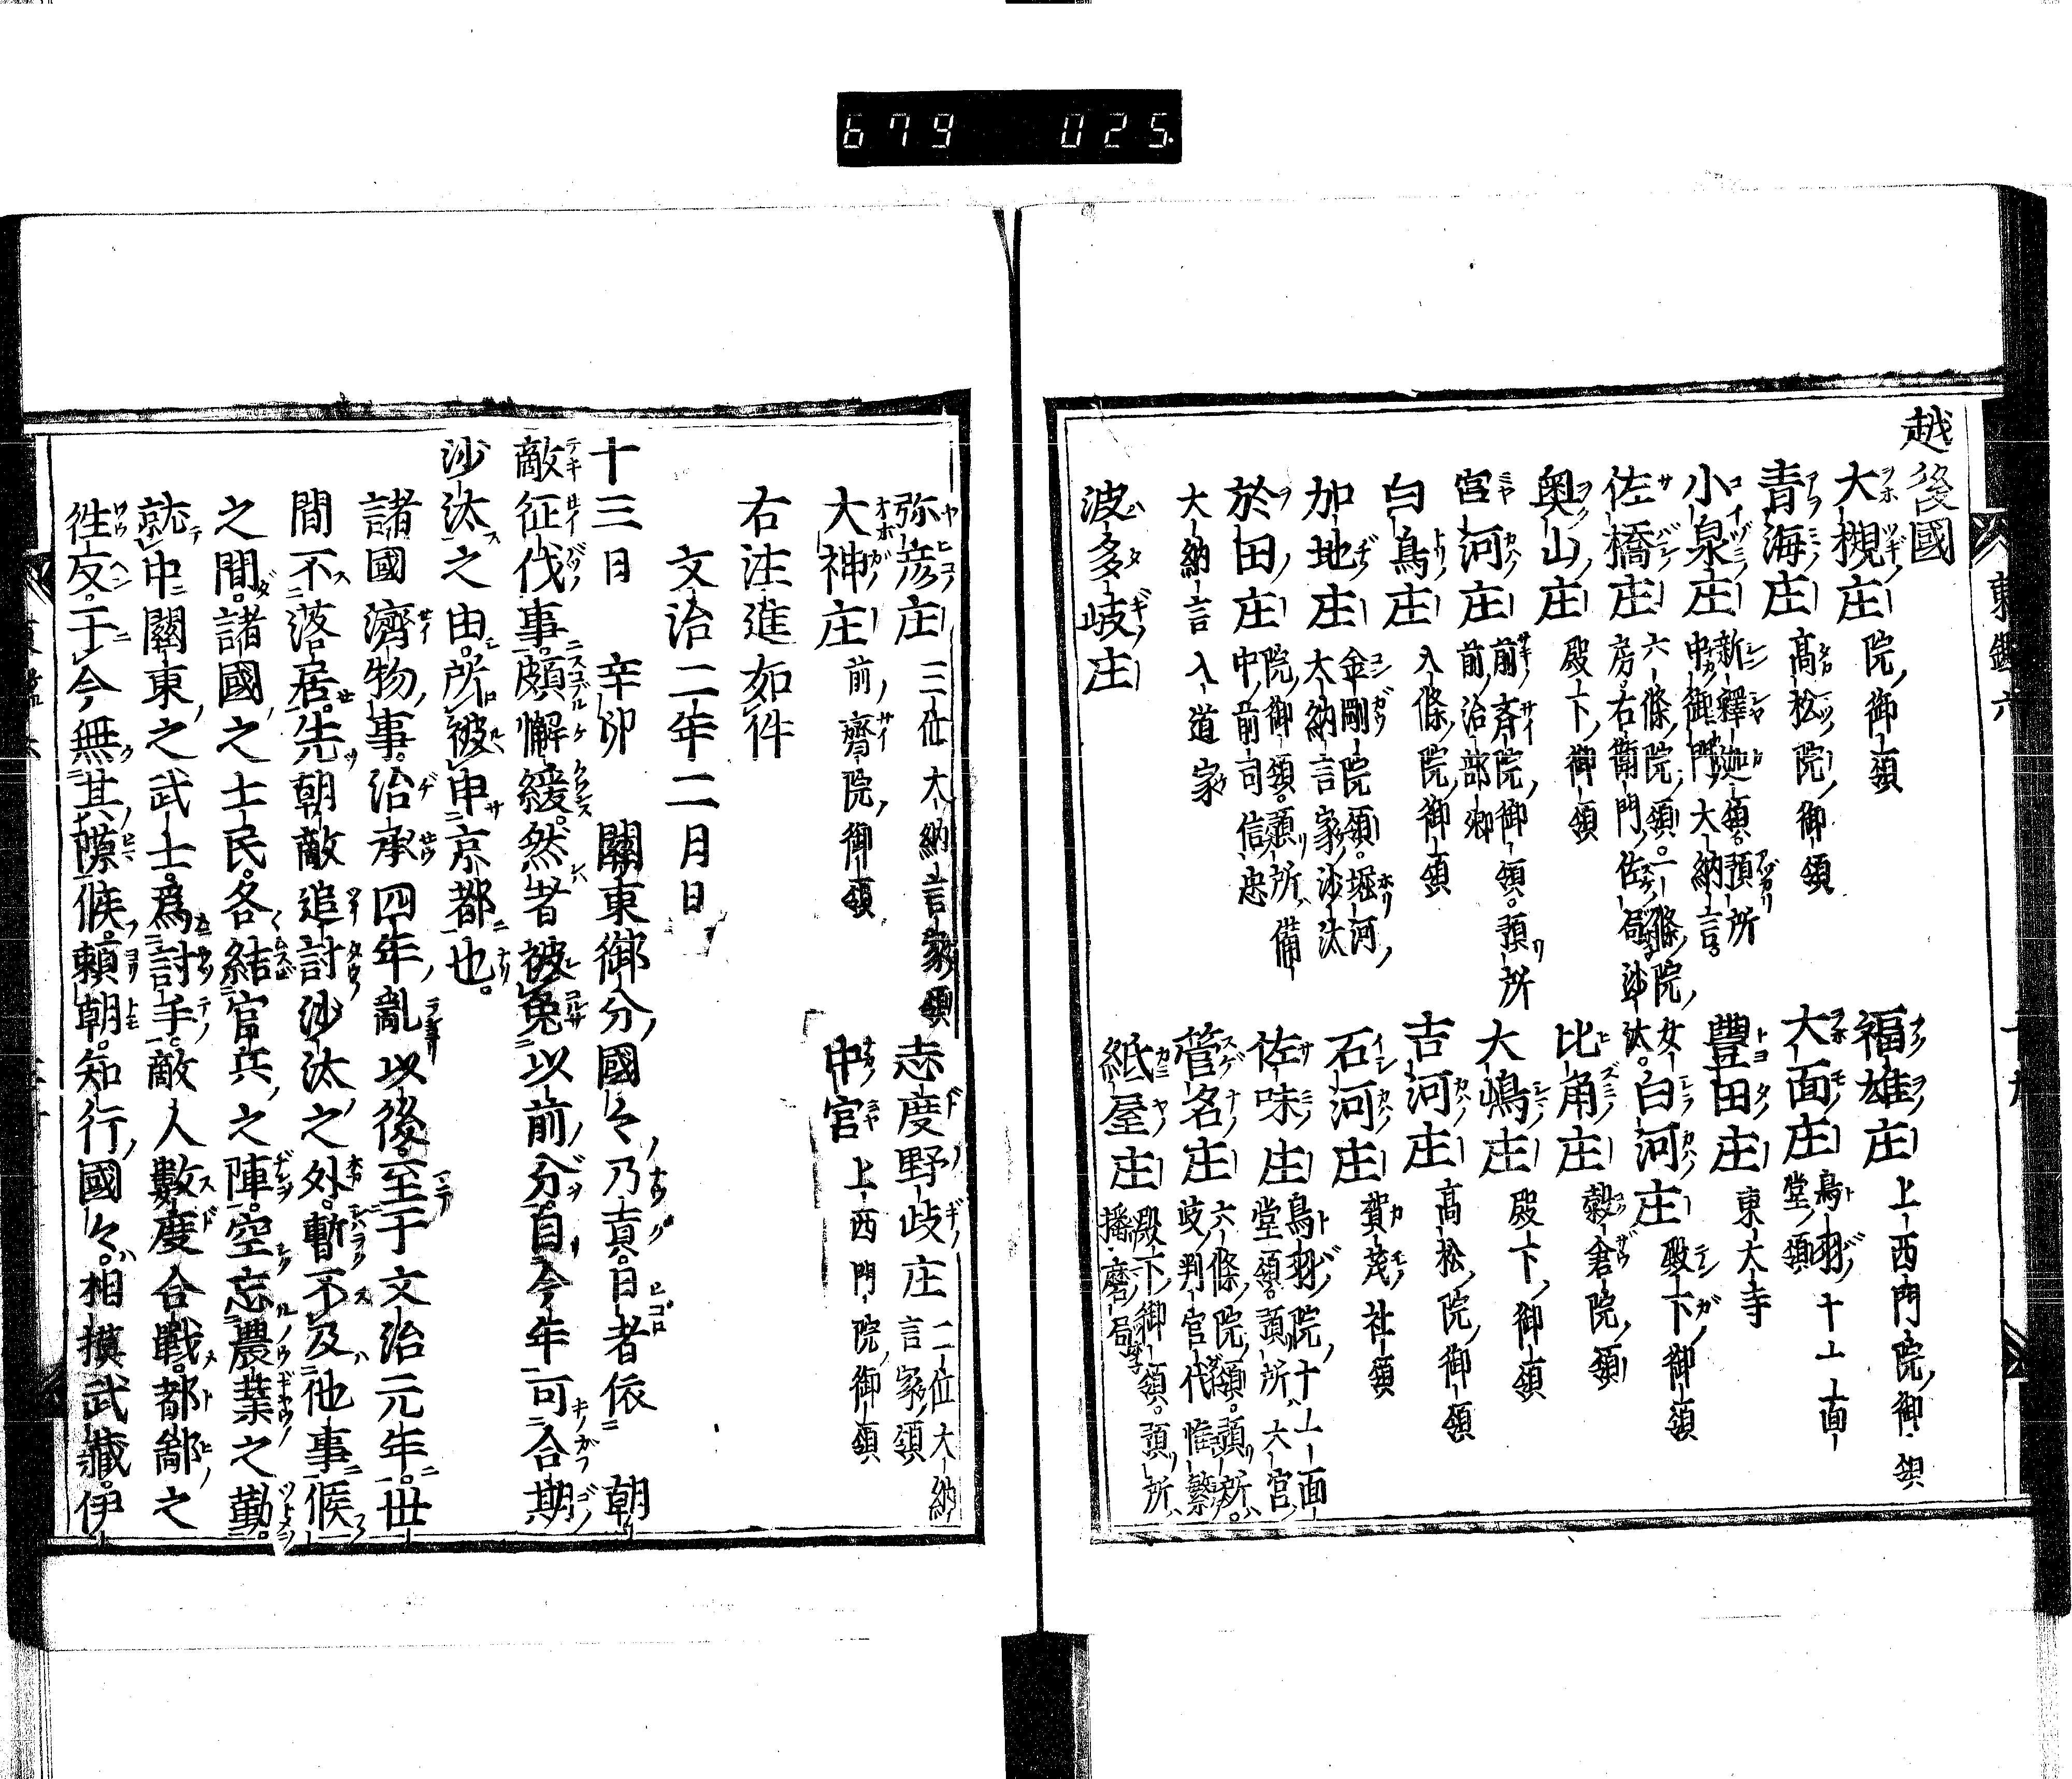 679 025
東鑑六
十九
越後國
大槻庄 院御領
福雄庄 上西門院御領
青海庄 高松院御領
大面庄 鳥羽十上面堂領
小泉庄 新釋迦領。預所中御門大納言。
豊田庄 東大寺
佐橋庄 六條院領。一條院女房右衛門佐局沙汰。
白河庄 殿下御領
奥山庄 殿下御領
比角庄 穀倉院領
宮河庄 前斎院御領。預所前治部卿
大嶋庄 殿下御領
白鳥庄 八條院御領
吉河庄 高松院御領
加地庄 金剛院領。堀河大納言家沙汰
石河庄 賀茂社領
於田庄 院御領。預所備中前司信忠
佐味庄 鳥羽院十上面堂領。預所六宮
大納言入道家
菅名庄 六條院領。預所。讃岐判官代惟繁
波多岐庄
紙屋庄 殿下御領。預所播磨局
弥彦庄 三位大納言家領
志度野岐庄 二位大納言家領
大神庄 前齋院御領
中宮 上西門院御領
右注進如件
文治二年二月日
十三日 辛卯 關東御分國々乃貢。日者依朝
敵征伐事。頗懈緩。然者被免以前分。自今年可合期
沙汰之由。所被申京都也。
諸國濟物事。治承四年亂以後。至于文治元年。世
間不落居。先朝敵追討沙汰之外。暫不及他事候
之間。諸國之士民。各結官兵之陣。空忘農業之勤。
就中關東之武士。爲討手。敵人數度合戰。都鄙之
徃反。于今無其隙候。頼朝。知行國々。相摸武藏。伊